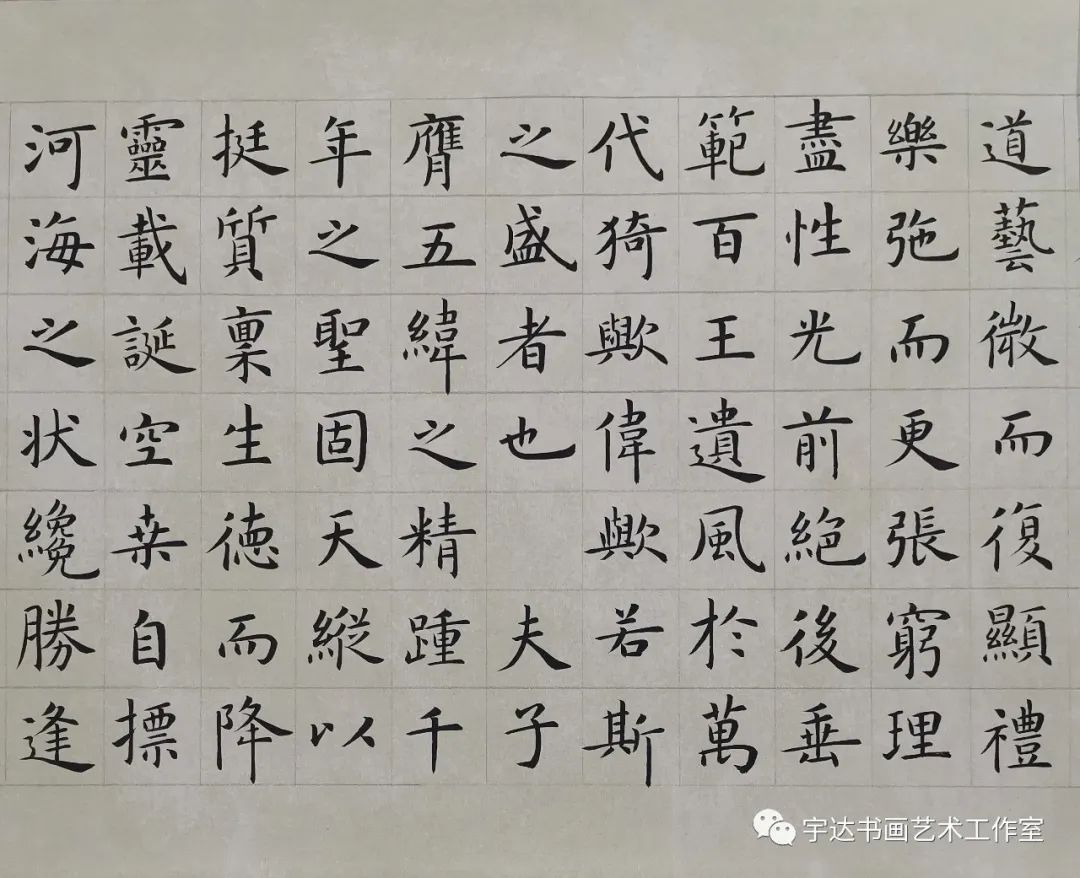 道藝微而復顯禮
樂弛而更張窮理
盡性光前絕後垂
範百王遺風於萬
代猗歟偉歟若斯
之盛者也夫子
膺五緯之精踵千
年之聖固天縱以
挺質稟生德而降
靈載誕空桒自摽
河海之状纔勝逢
宇达书画艺术工作室